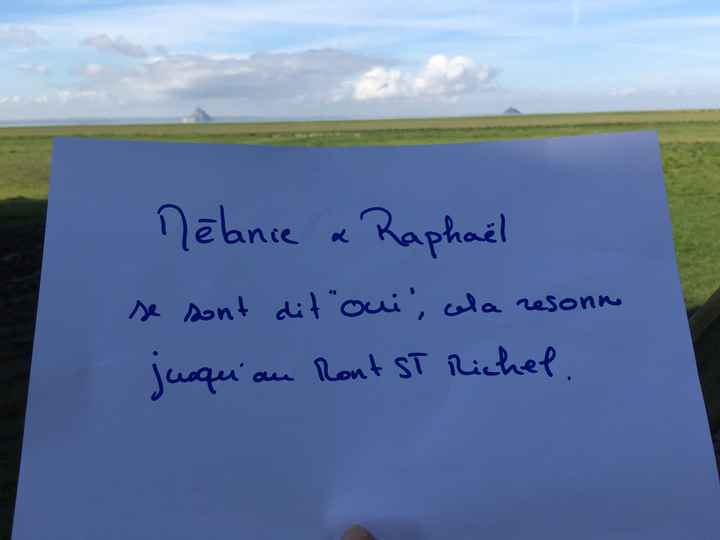 Mélanie & Raphaël
se sont dit "oui", cela resonne
jusqu'au Mont ST Michel.